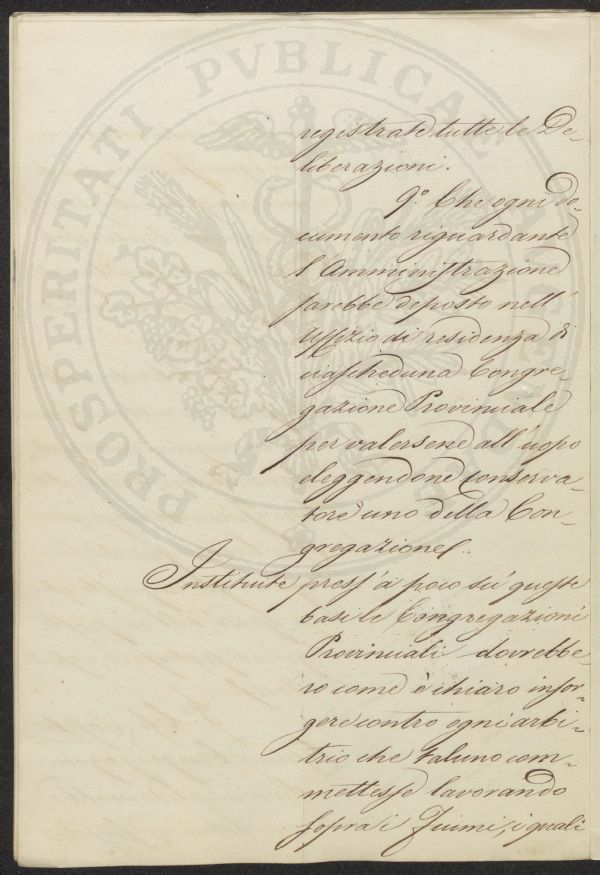 PROSPERITATI PVBLICAE
registrate tutte le De-
liberazioni.
9.° Che ogni do-
cumento riguardante
l'Amministrazione
sarebbe deposto nell'
Uffizio di residenza di
ciascheduna Congre-
gazione Provinciale
per valersene all'uopo
eleggendone conserva-
tore uno della Con-
gregazione.
Instituite press'a poco su queste
basi le Congregazioni
Provinciali dovrebbe-
ro come è chiaro insor-
gere contro ogni arbi-
trio che taluno com-
mettesse lavorando
sopra i Fiumi, i quali